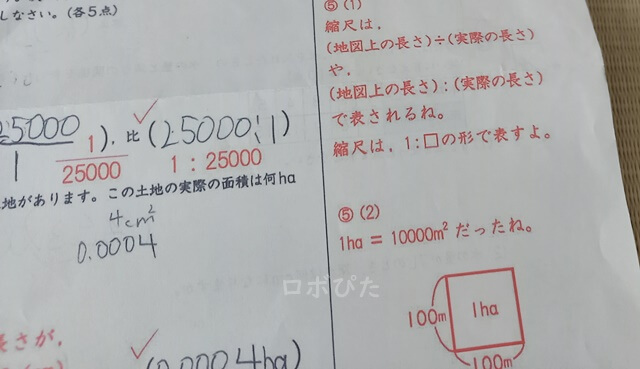 しなさい。(各5点)
25000
1
1
25000
), 比 (25000:1)
1:25000
地があります。この土地の実際の面積は何ha
4cm²
0.0004
長さが,
(0.0004ha)
⑤(1)
縮尺は,
(地図上の長さ)÷(実際の長さ)
や,
(地図上の長さ):(実際の長さ)
で表されるね。
縮尺は, 1:□の形で表すよ。
⑤(2)
1ha = 10000m² だったね。
100m
1ha
100m
ロボぴた